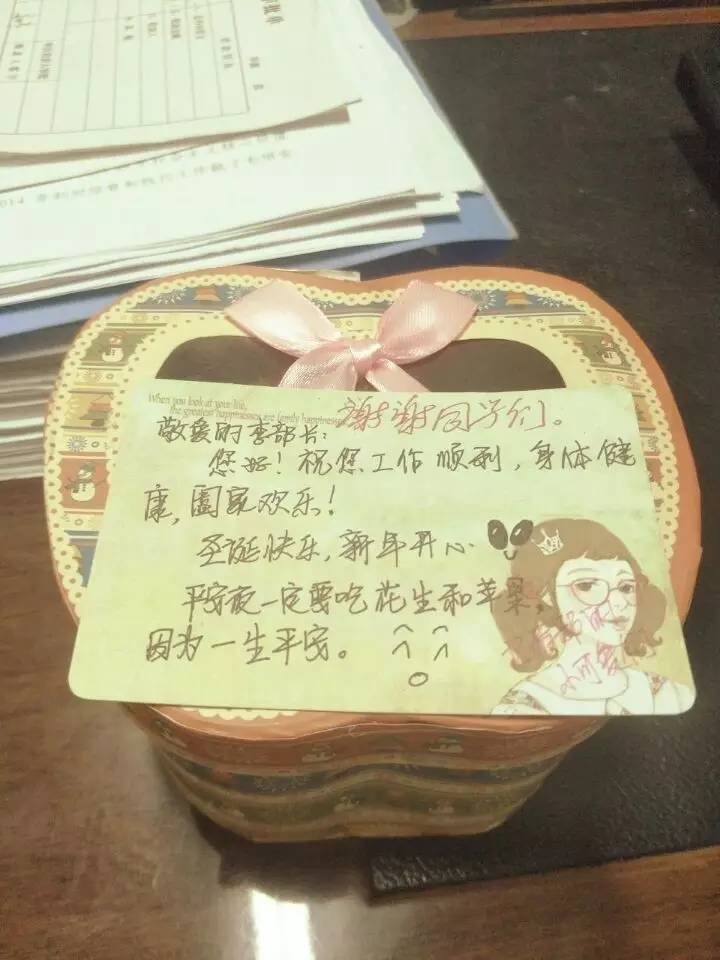 When you look at your life,
the greatest happinesses are family happinesses
谢谢同学们。
敬爱的李部长:
您好!祝您工作顺利,身体健
康,阖家欢乐!
圣诞快乐,新年开心
平安夜一定要吃花生和苹果,
因为一生平安。